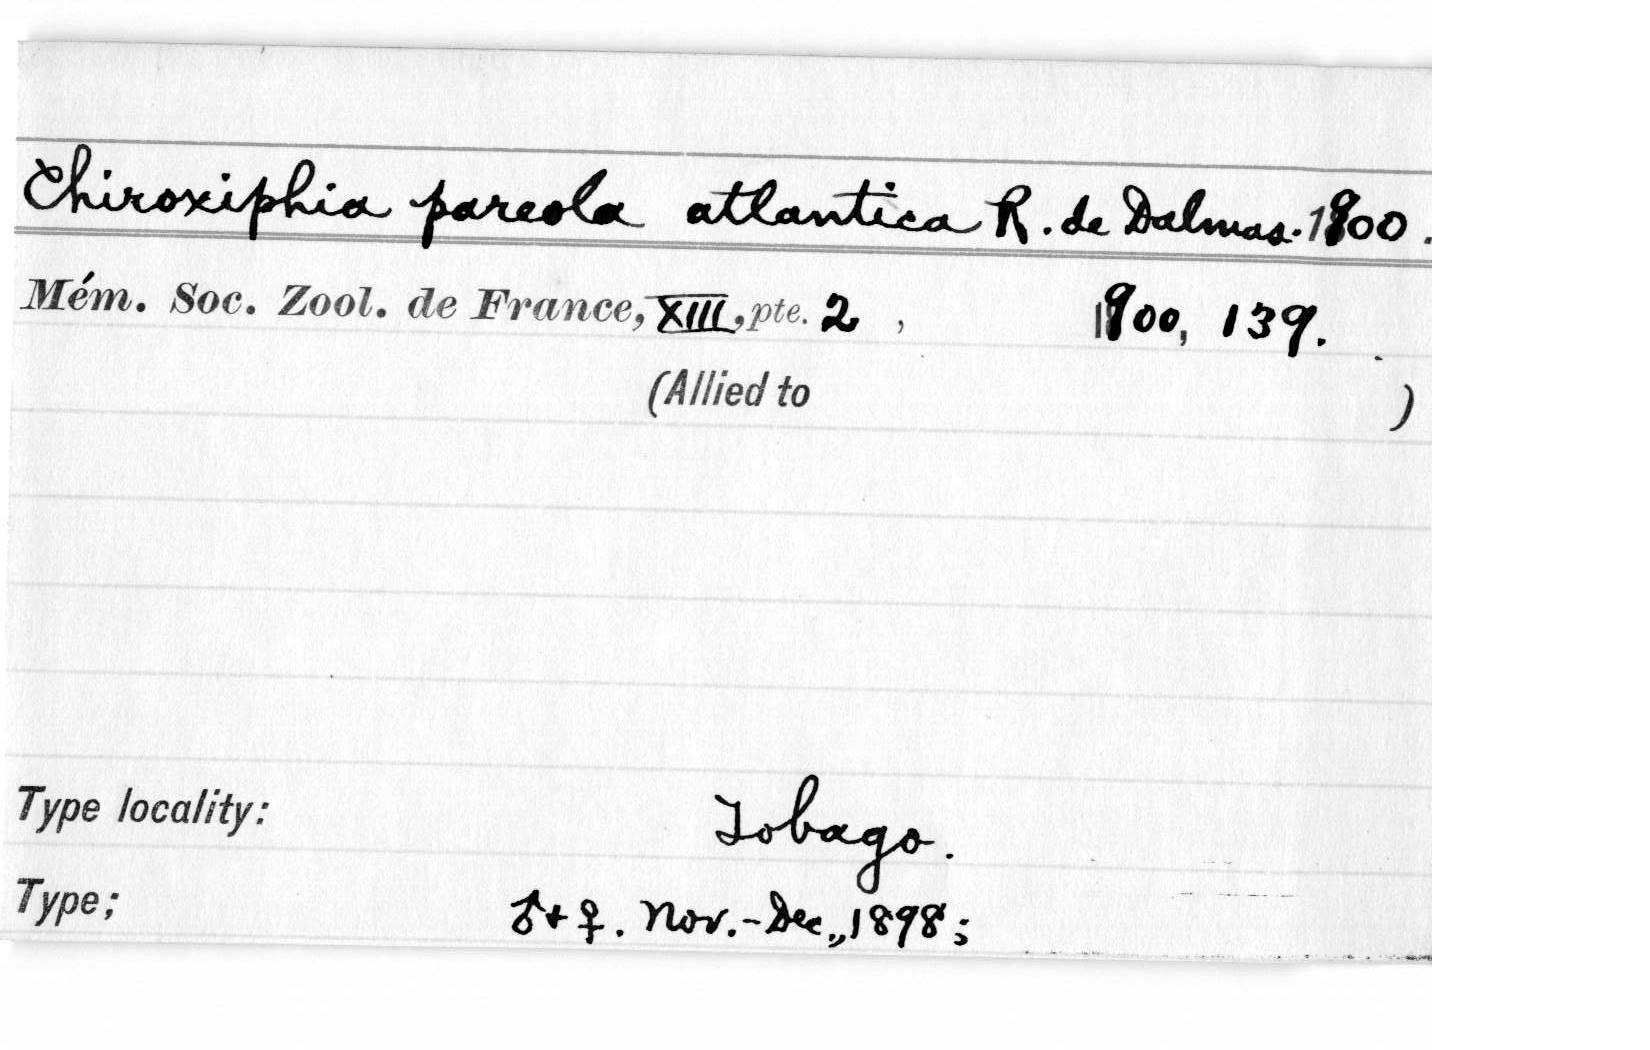 Chiroxiphia pareola atlantica R. de Dalmas. 1900.
Mém. Soc. Zool. de France, XIII, pte. 2, 1900, 139.
(Allied to )
Type locality: Tobago.
Type; ♂ + ♀. Nov.-Dec., 1898;